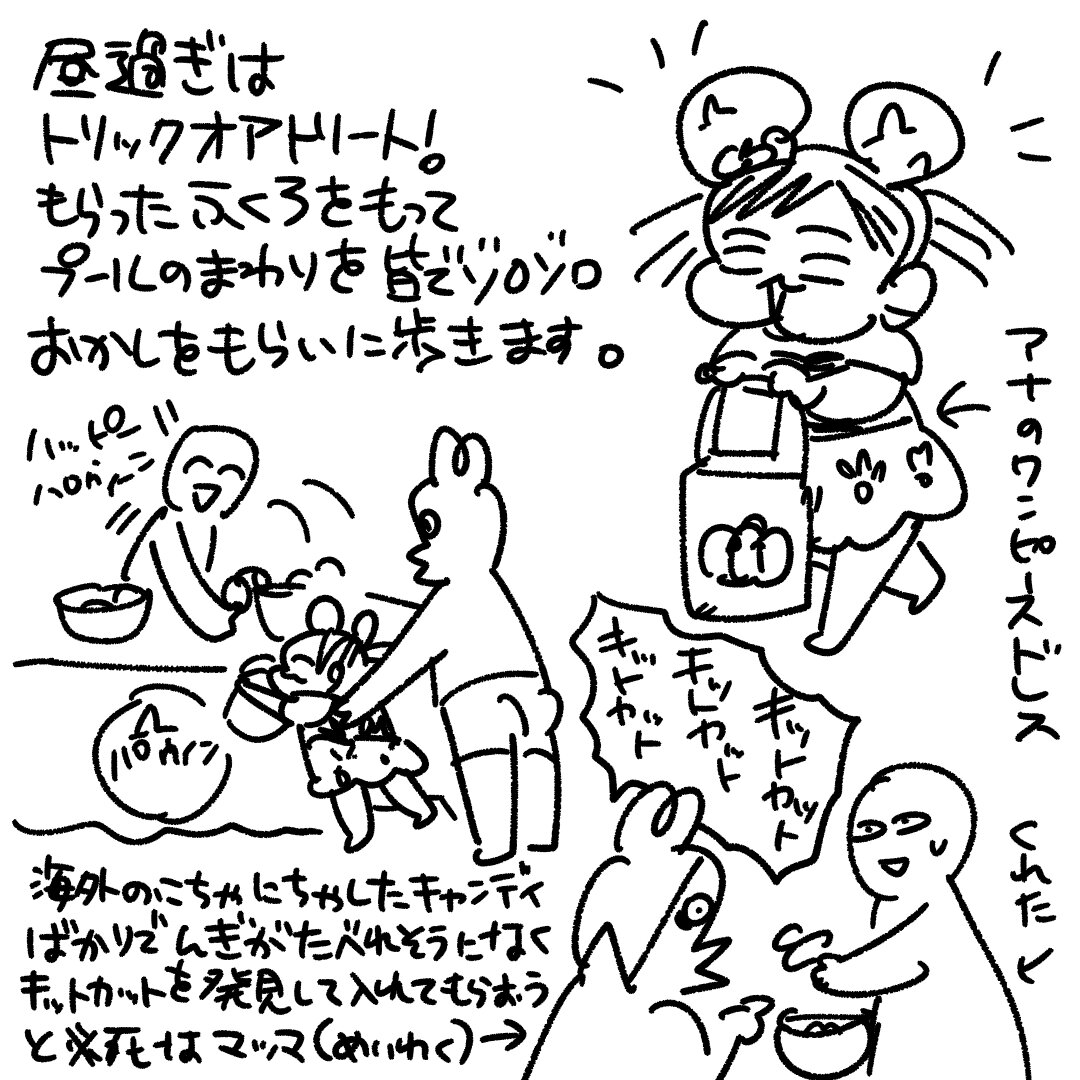 昼過ぎは
トリックオアトリート!
もらったふくろをもって
プールのまわりを皆でゾロゾロ
おかしをもらいに歩きます。
アナのワンピースドレス
ハッピー
ハロウィーン
ハロウィン
キットカット
キットカット
キットカット
くれた
海外のこちゃにちゃしたキャンディ
ばかりでんぎがたべれそうになく
キットカットを発見して入れてもらおう
と必死はマッマ(めいわく)→